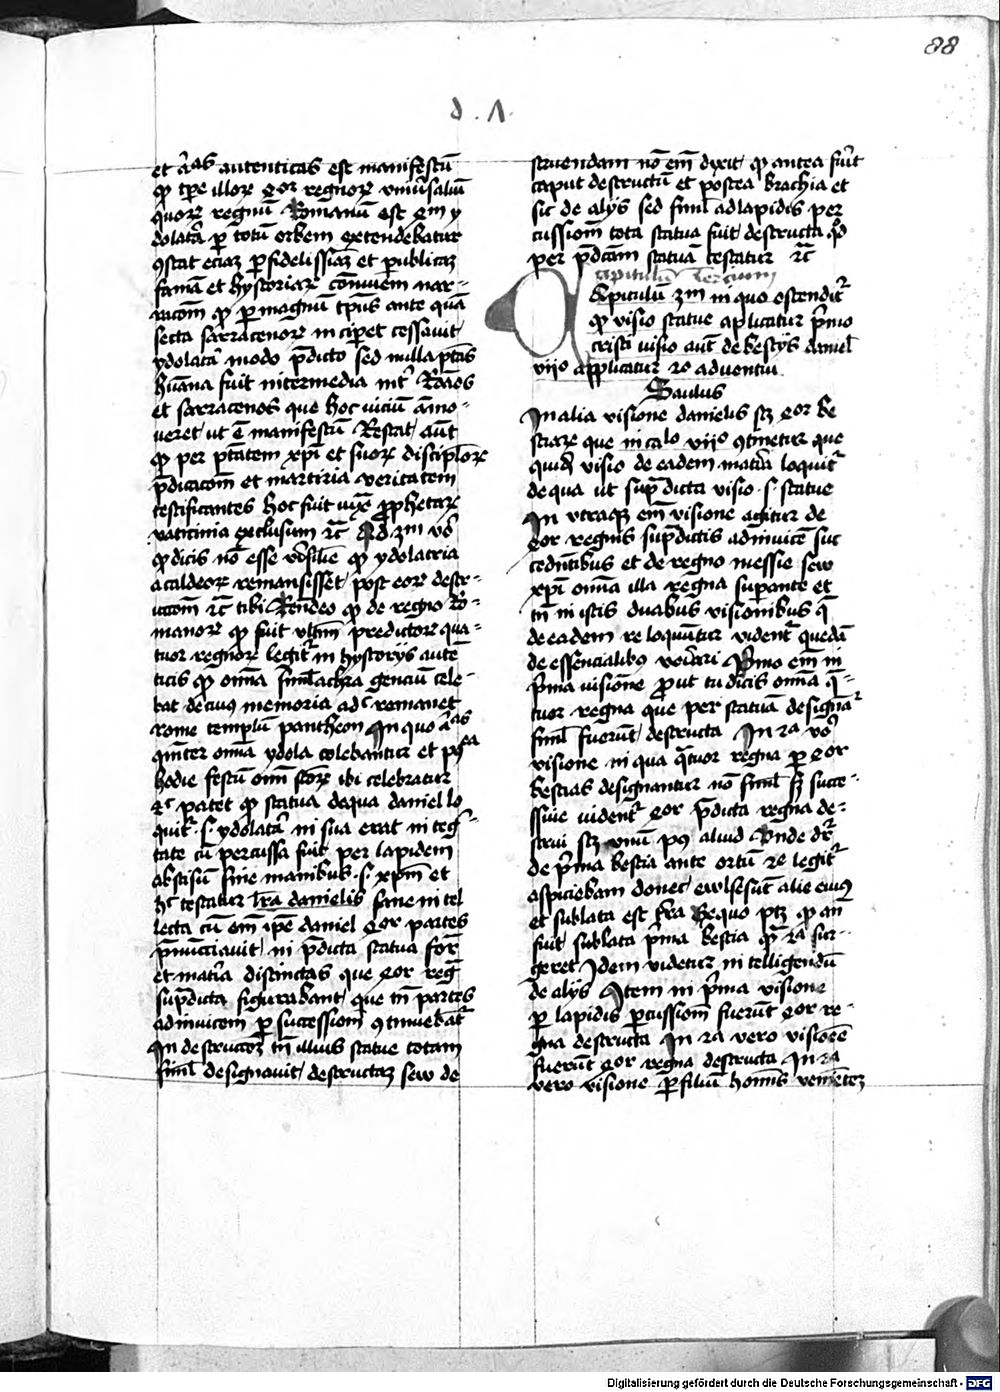 88
d . Λ .
et l̄ras autenticas est manifestū
qꝫ tꝑe illorꝫ qor regnorꝫ vniūsaliū
quorꝫ regnū Romanū est qm y
dolatⁱa ꝑ totū orbem extendebatur
ꝯstat eciaꝫ ꝑ fidelissiaꝫ et publicaꝫ
famā et hystoriarꝫ cōmuem nar-
racōm qꝫ ꝑ magnū tp̄us ante quā
secta sarracenorꝫ inciperet cessauit
ydolatⁱa modo p̄dicto sed nulla ptās
hūana fuit intermedia intᵉ Rōaos
et sarracenos que hoc viciū āmo-
ueret ut ē manifestū Restat aūt
qꝫ per ptātem xp̄i et suorꝫ disciplorꝫ
p̄dicacōm et martiria veritatem
testificantes hoc fuit iuxᵃ ꝓphetarꝫ
vaticinia exclusum ⁊c̄ Ad 2m vō
qꝫ dicis nō esse vōsile qꝫ ydolatria
a caldeorꝫ remansisset post eorꝫ destr-
uccōm ⁊c̄ tibi Rn̄deo qꝫ de regno Ro-
manorꝫ qꝫ fuit vltm̄ predictorꝫ qua-
tuor regnorꝫ legitᵉ in hystorys autē
ticis qꝫ om̄a similachra genciū cole-
bat de cuiꝰ memoria adᶜ remanet
rome templū pantheon In quo
om̄a ydola colebantur et postea
hodie festū om̄ sc̄torꝫ ibi celebratur
patet qꝫ statua de qua daniel lo
quitᵉ .s. ydolatⁱa in sua erat integⁱ-
tate cū percussa fuit per lapidem
abscisū sine manibus .s. xp̄m et
hᶜ testatur lr̄a danielis sane intel
lecta cū em̄ ip̄e daniel qor partes
p̄nūciauit in p̄dicta statua forᵃ
et matⁱa distinctas que qor regⁿ
sup̄dicta figurabant que tn̄ partes
adinuicem ꝑ successionē ꝯtinuebātᵉ
In destruccōe tn̄ illius statue totam
simᶫ designauit destructaꝫ seu de
struendam nō em̄ dixit qꝫ antea fuīt
caput destructū et postea brachia et
sic de alys sed simᶫ ad lapidis per
cussionē tota statua fuit destructa qd̄
per p̄dcām statuā testatur ⁊c̄
Capitulū Tercium
Capitulū 3m in quo ostenditᵉ
qꝫ visio statue aplicatur p̄mo
cristi visio aūt de bestys daniel
viio applicatur 2o aduentui
Saulus
In alia visione danielis scꝫ qor be
stiarꝫ que in calo viio ꝯtinetur que
quidē visio de eadem matⁱa loquitᵉ
de qua ut sup̄dicta visio .s. statue
In vtraqꝫ em̄ visione agitur de
qor regnis sup̄dictis adinuicē suc
cedn̄tibus et de regno messie seu
xp̄i om̄ia illa regna suꝑante et
tn̄ in istis duabus visionibus q̄
de eadem re loquuntur videntᵉ quedā
de essencialibꝰ variari Primo em̄ in
p̄ma visione ꝓut tu dicis om̄a qᵃ-
tuor regna que per statuā designaᵗ
simᶫ fuerūt destructa In 2a vō
visione in qua qᵃtuor regna ꝑ qor
bestias designantur nō simᶫ sꝫ succe-
ssiue videntᵉ qor p̄dicta regna de-
strui scꝫ vnū pꝰ aliud Vnde dᵉ
de p̄ma bestia ante ortū 2e legitᵉ
aspiciebam donec euulse sūt alie eiuꝰ
et sublata est t̄ra Ex quo ptꝫ qꝫ an̄
fuit sublata p̄ma bestia qᵃ 2a sur-
geret Idem videtur intelligendū
de alys Item in p̄ma visione
ꝑ lapidis ꝑcussionē fuerūt qor re-
gna destructa In 2a vero visione
fuerūt qor regna destructa In 2a
vero visione ꝑ filiū hoīs venientē
Digitalisierung gefördert durch die Deutsche Forschungsgemeinschaft - DFG